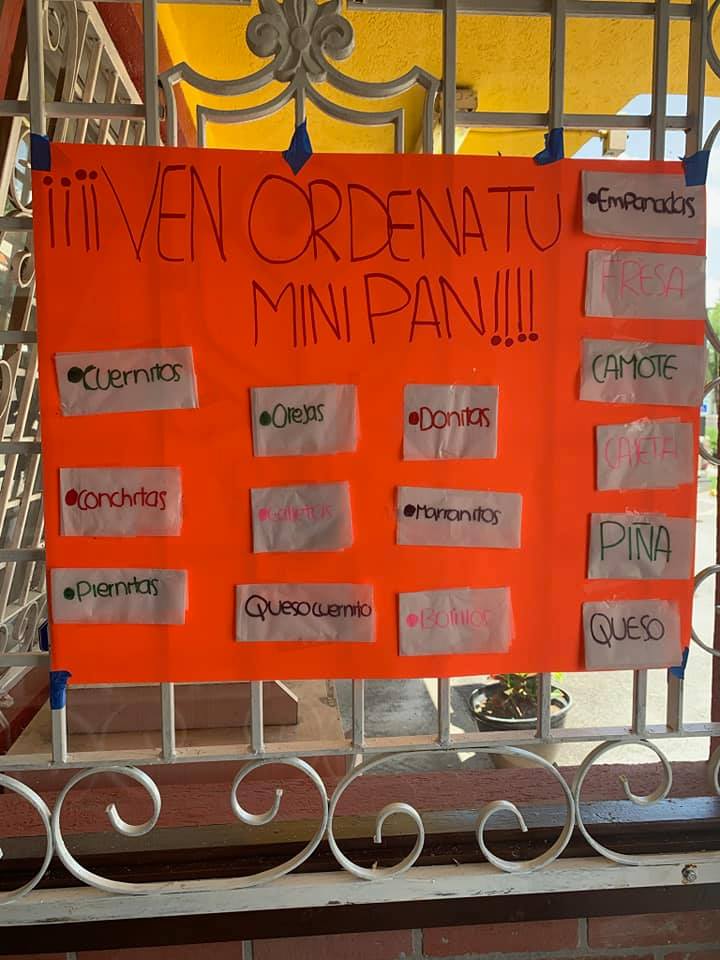 ¡¡¡¡VEN ORDENA TU
MINI PAN!!!!
•Cuernitos
•Conchitas
•Piernitas
•Orejas
•Galletas
Quesocuernito
•Donitas
•Marranitos
•Bolillos
•Empanadas
FRESA
CAMOTE
CAJETA
PIÑA
QUESO